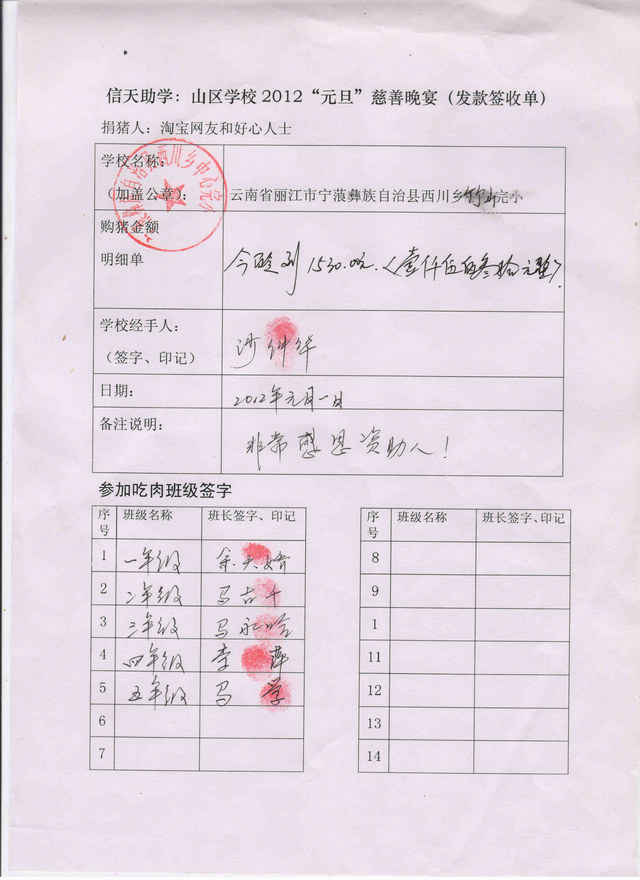 信天助学：山区学校2012“元旦”慈善晚宴（发款签收单）
捐猪人：淘宝网友和好心人士
学校名称：
（加盖公章）：
云南省丽江市宁蒗彝族自治县西川乡竹山完小
购猪金额
明细单
今碰到1530.00元.〈壹仟伍佰叁拾元整〉.
学校经手人：
（签字、印记）
沙仲华
日期：
2012年元月一日
备注说明：
非常感恩资助人！
参加吃肉班级签字
序号 班级名称 班长签字、印记
1 一年级
2 二年级 马古千
3 三年级 马永哈
4 四年级 李 萍
5 五年级 马 学
6
7
序号 班级名称 班长签字、印记
8
9
1
11
12
13
14